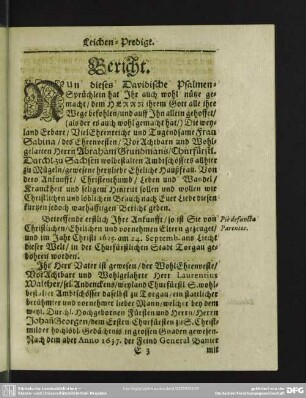 Leichen-Predigt.
Bericht.
Nun dieses Davidische Psalmen-
Sprüchlein hat Ihr auch wohl nütze ge-
macht, dem HERRN ihrem Gott alle ihre
Wege befohlen/und auff Ihn allein gehoffet/
als der es auch wohl gemacht hat/ Die weyl
land Erbare/ Viel Ehrenreiche und Tugendsame Frau
Sabina/ des Ehrenvesten/ Vor Achtbarn und Wohl
gelarten Herrn Abraham Grundmanns/Churfürstl.
Durchl. zu Sachsen wolbestalten Ambtschössers allhier
zu Mügeln/gewesene hertzliebe Eheliche Haußfrau. Von
dero Ankunfft/ Christenthumb/ Leben und Wandel/
Kranckheit und seligem Hintritt sollen und wollen wir
Christlichen und löblichen Brauch nach Euer Liebe diesen
kurtzen jedoch warhafftigen Bericht geben.
Betreffende erstlich Ihre Ankunfft/ so ist Sie von
Christlichen/Ehrlichen und vornehmen Eltern gezeuget/
und im Jahr Christi 1625. am 24. Septemb. ans Liecht
dieser Welt/ in der Churfürstlichen Stadt Torgau ge-
bohren worden.
Piè defunctæ
Parentes.
Ihr Herr Vater ist gewesen/ der Wohl Ehrenveste/
Vor Achtbare und Wohlgelahrte Herr Laurentius
Walther/ sel. Andencken/weyland Churfürstl. S. wohl-
bestalter Ambtschösser daselbst zu Torgau/ein stattlicher
berühmter und vornehmer lieber Mann/welcher bey dem
weyl. Durchl. Hochgebornen Fürsten und Herrn/Herrn
Johan Georgen/dem Ersten Churfürsten zu S. Christ-
milder hochlöbl. Gedächtnis in grossen Gnaden gewesen.
Nach dem aber Anno 1637. der Feind General Banier
E 3
mit